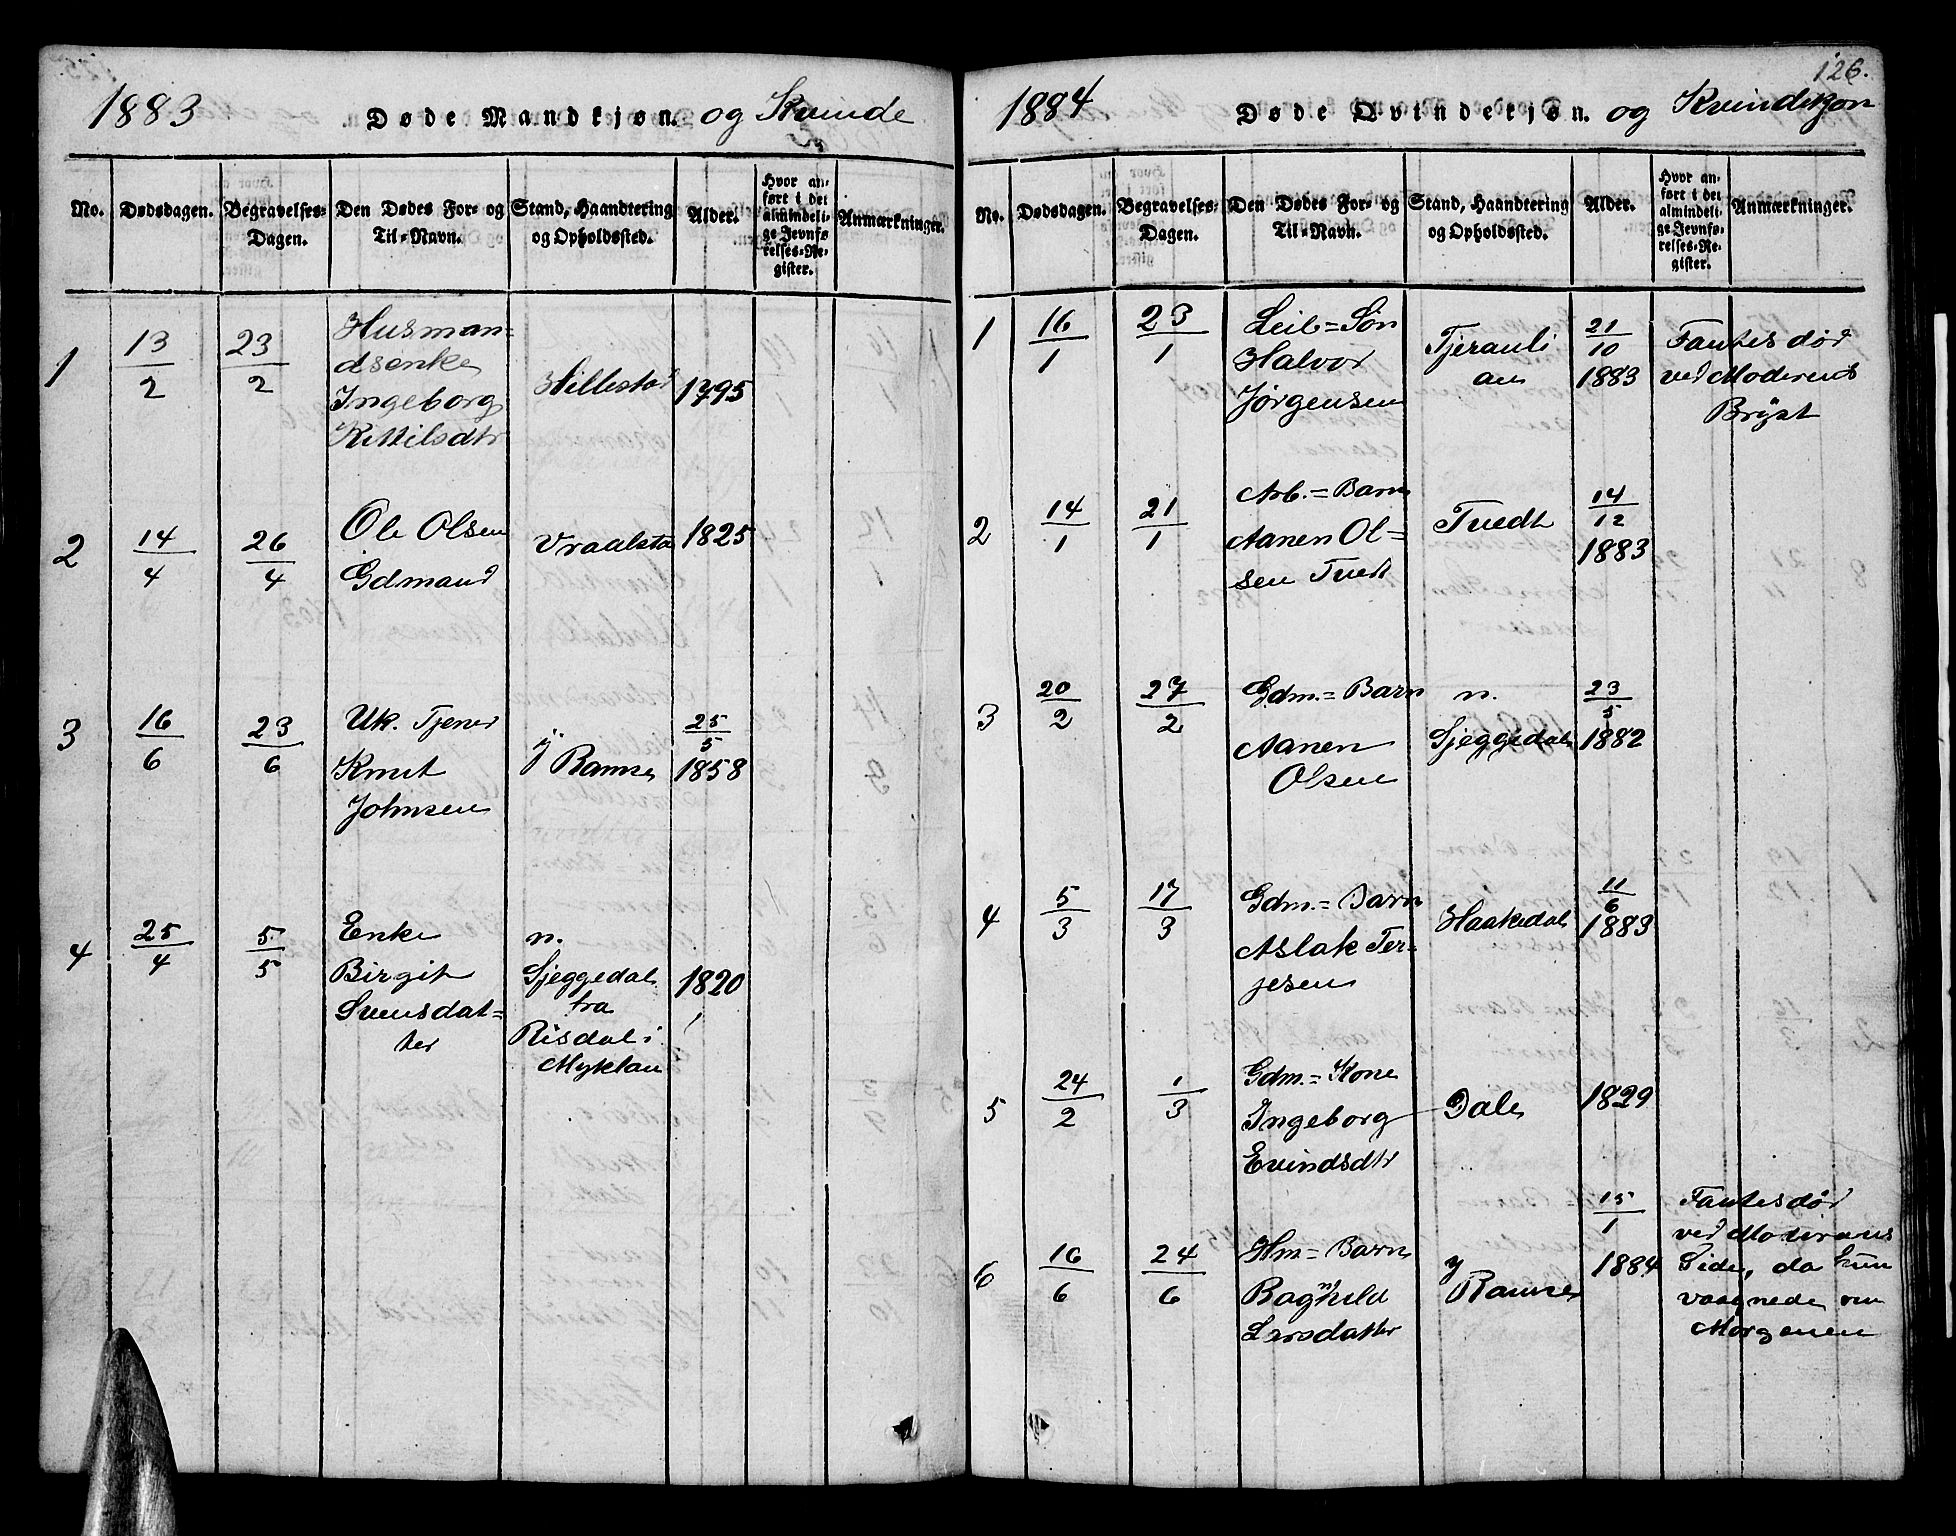 1883 Døde Mandkjøn. og Kvinde
No.
Dødsdagen.
Begravelses-
Dagen.
Den Dødes For- og
Til-Navn.
Stand, Haandtering
og Opholdssted.
Alder.
Hvor an-
ført i det
almindeli-
ge Jevnfø-
relses-Re-
gister.
Anmærkninger.
1
13/2
23/2
Husman=
dsenke
Ingeborg
Kittilsdtr
Hillestad
1795
2
14/4
26/4
Ole Olsen
Gdmand
Vraalstad
1825
3
16/6
23/6
Uk. Tjener
Knut
Johnsen
y Ramse
25/5
1858
4
25/4
5/5
Enke
Birgit
Svensdat=
ter
n.
Sjeggedal
fra
Risdal i
Myklan
1820
126.
1884 Døde Qvindekjøn. og Kvindekjøn
No.
Dødsdagen.
Begravelses-
Dagen.
Den Dødes For- og
Til-Navn.
Stand, Haandtering
og Opholdssted.
Alder.
Hvor an-
ført i det
almindeli-
ge Jevnfø-
relses-Re-
gister.
Anmærkninger.
1
16/1
23/1
Leil=Søn
Halvor
Jørgensen
Tjerauli
an
21/10
1883
Fantes død
ved Moderens
Bryst
2
14/1
21/1
Arb.=Barn
Aanen Ol=
sen Tvedt
Tvedt
14/12
1883
3
20/2
27/2
Gdm.=Barn
Aanen
Olsen
n.
Sjeggedal
23/5
1882
4
5/3
17/3
Gdm.=Barn
Aslak Ter=
jesen
Haakedal
11/6
1883
5
24/2
1/3
Gdm.=Kone
Ingeborg
Evindsdtr
Dale
1829
6
16/6
24/6
Hm=Barn
Raghild
Larsdatter
y
Ramse
15/1
1884
Fantes død
ved Moderens
Side, da hun
vaagnede om
Morgenen